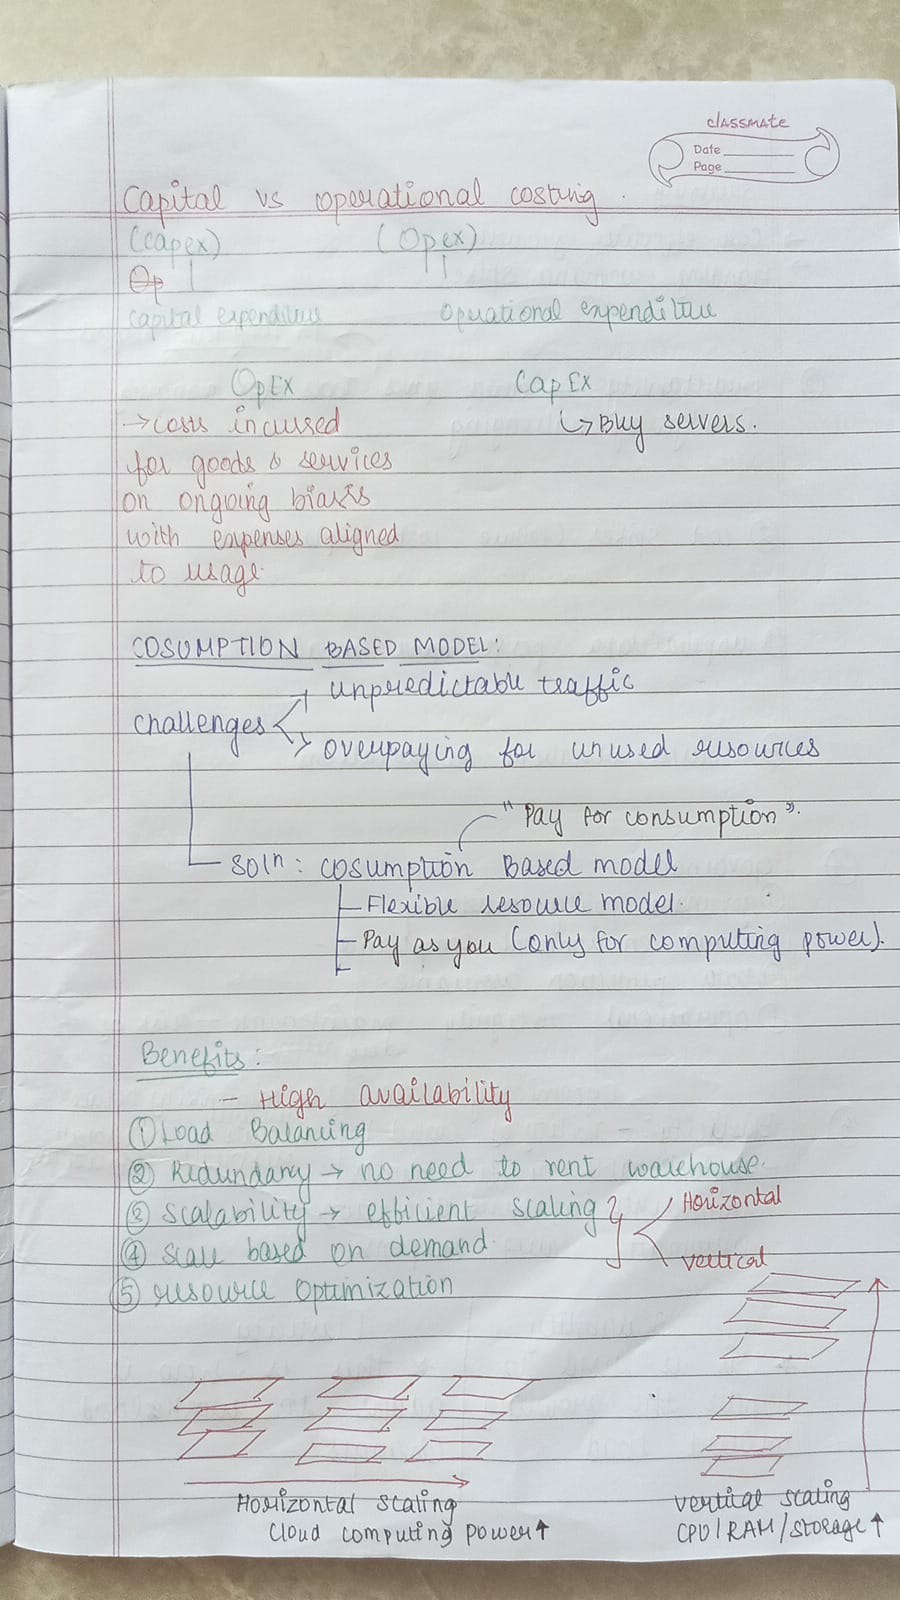 classmate
Date
Page
Capital vs operational costing.
(Capex) (Opex)
Op
Capital expenditure Operational expenditure
OpEx CapEx
→ costs incurred ↳ Buy servers.
for goods & services
on ongoing biasis
with expenses aligned
to usage.
COSUMPTION BASED MODEL:
unpredictable traffic
challenges
overpaying for unused resources
"Pay for consumption".
soln: cosumption Based model
Flexible resource model.
Pay as you (only for computing power).
Benefits:
- High availability
① Load Balancing
② Redundancy → no need to rent warehouse.
③ Scalability → efficient scaling } Horizontal
④ Scale based on demand. vertical
⑤ resource optimization
Horizontal scaling
cloud computing power ↑
vertical scaling
CPU/RAM/Storage ↑